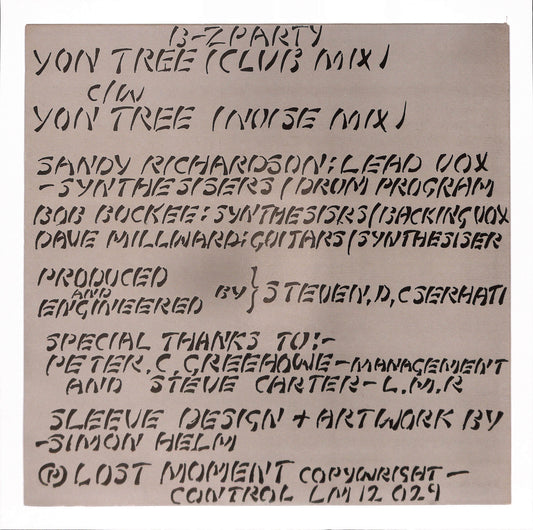 B-ZPARTY
YON TREE (CLUB MIX)
C/W
YON TREE (NOISE MIX)
SANDY RICHARDSON: LEAD VOX
-SYNTHESISERS/DRUM PROGRAM
BOB BUCKEE: SYNTHESISRS/BACKING VOX
DAVE MILLWARD: GUITARS/SYNTHESISER
PRODUCED
AND
ENGINEERED BY } STEVEN, D, CSERHATI
SPECIAL THANKS TO!-
PETER. C. GREEHOWE - MANAGEMENT
AND STEVE CARTER - L.M.R
SLEEVE DESIGN + ARTWORK BY
-SIMON HELM
Ⓟ LOST MOMENT COPYWRIGHT -
CONTROL LM 12 029